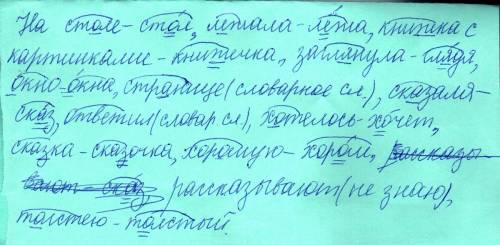 На столе - стол, лежала - лёжа, книжка с
картинками - книжечка, заглянула - глядя,
окно - окна, странице (словарное сл.), сказала -
сказ, ответил (словар сл), хотелось - хочет,
сказка - сказочка, хорошую - хорош, рассказы-
вают - сказ рассказывают (не знаю),
толстею - толстый.